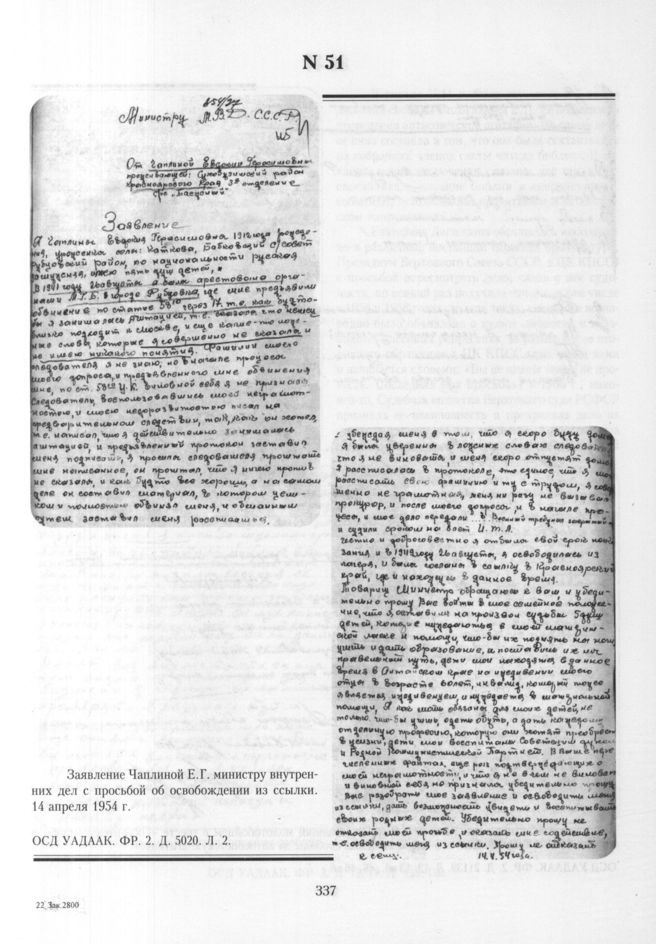 N 51
854/37
Министру М.В.Д. С.С.С.Р.
От Чаплиной Евдокии Герасимовны
проживающей: Сухобузимский район
Красноярского Края 3е отделение
с-з "Таежный"
Заявление
Я Чаплина Евдокия Герасимовна 1912 года рожде-
ния, уроженка села: Каткова, Бобковский с/совет
Рубцовский район, по национальности русская
замужняя, имею пять душ детей,
В 1941 году 26 августа я была арестована орга-
нами М.Г.Б. в городе Рубцовка, где мне предъявили
обвинение по статье 58/10 через 17 т.е. как будто-
бы я занималась агитацией, т.е. сказала что немец
близко подходит к Москве, и еще какие-то
слова, которые я совершенно не сказала и
не имею никакого понятия. Фамилии своего
следователя я не знаю, но в начале процесса
моего допроса, и предъявленного мне обвинения
мне, по ст. 58 10 У.К. виновной себя я не признала
Следователь, воспользовавшись моей неграмот-
ностью, и моею недоразвитостью писал на
предварительном следствии, так, как он хотел
т.е. написал, что я действительно занималась
агитацией, и предъявленный протокол заставил
меня подписать, я просила следователя прочитать
мне написанное, он прочитал, что я ничего против
не сказала, и как будто все хорошо, а на самом
деле он составил материал, в котором
полностью обвинял меня, и обманным
путем заставил меня расписаться,
убеждая меня в том, что я скоро буду дома
я была уверена в ложных словах следователя
что я не виновата и меня скоро отпустят домой
Я рассписалась в протоколе, это единое что я могу
рассписать свою фамилию и ту с трудом, я совер-
шенно не грамотная, меня ни разу не вызывал
прокурор, и после моего допроса, и в начале про-
цесса, и мое дело передали Военный трибунал
и судили сроком на 8 лет И.Т.Л.
честно и добросовестно я отбыла свой срок нака-
зания и в 1949 году 26 августа, я освободилась из
лагеря, и была сослана в ссылку в Красноярский
край, где и нахожусь в данное время.
Товарищ Министр обращаюсь к вам и убеди-
тельно прошу Вас войти в мое семейное положе-
ние, что я, оставила на произвол судьбы
детей, которые нуждаются в моей материн-
ской ласке и помощи, что-бы их поднять на ноги
учить и дать образование, и поставить их на
правельный путь, дети мои находятся в данное
время в Алтайском крае на иждевении моего
отца в возрасте 80 лет, инвалид, который тоже
является иждивенцем, и нуждается в материальной
помощи, Я как мать обязана для моих детей, не
только что-бы учить, одеть обуть, а дать каждому
отдельную профессию, которую они хотят приобрести
в жизни, дети мои воспитаны Советским духом
и Родной Коммунистической Партией. В выше пере-
численных фактах, еще раз подтверждающих о
моей неграмотности, и что я не в чем не виновата
и виновной себя не признала, убедительно прошу
Вас разобрать мое заявление и освободить меня
из ссылки, дать возможность увидеть и воспитывать
своих родных детей. Убедительно прошу не
отказать моей просьбе, и оказать мне содействие,
т.е. освободить меня из ссылки. Прошу не отказать
к сему. 14.4.54 года.
Заявление Чаплиной Е.Г. министру внутрен-
них дел с просьбой об освобождении из ссылки.
14 апреля 1954 г.
ОСД УАДААК. ФР. 2. Д. 5020. Л. 2.
337
22 Зак.2800